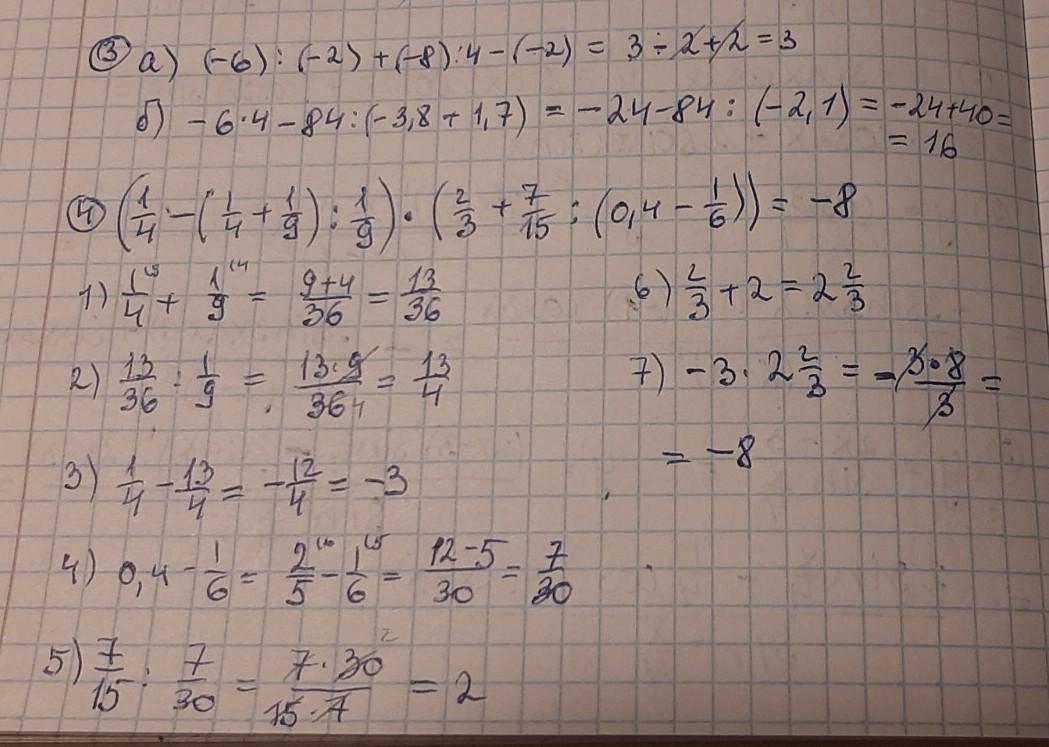 ③ а) (-6) : (-2) + (-8) : 4 - (-2) = 3 - 2 + 2 = 3
б) -6·4 - 84 : (-3,8 + 1,7) = -24 - 84 : (-2,1) = -24+40 =
= 16
④ (1/4 - (1/4 + 1/9) : 1/9) · (2/3 + 7/15 : (0,4 - 1/6)) = -8
1) 1/4 (9 + 1/9 (4 = 9+4/36 = 13/36
6) 2/3 + 2 = 2 2/3
2) 13/36 : 1/9 = 13·9/36 4 = 13/4
7) -3 · 2 2/3 = - 3·8/3 =
= -8
3) 1/4 - 13/4 = -12/4 = -3
4) 0,4 - 1/6 = 2/5 (6 - 1/6 (5 = 12-5/30 = 7/30
5) 7/15 : 7/30 = 7·30 2/15·7 = 2